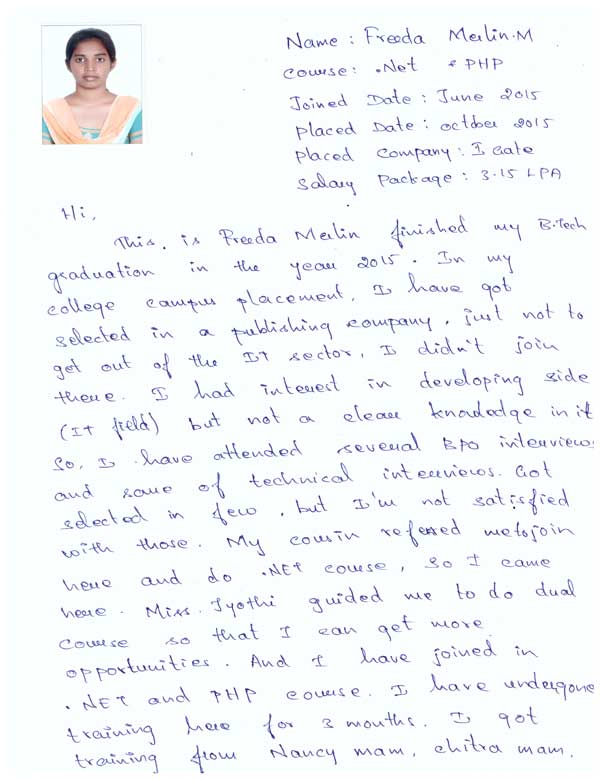 Name : Freeda Merlin.M
Course : .Net & PHP
Joined Date : June 2015
Placed Date : october 2015
Placed Company : I Gate
Salary Package : 3.15 LPA
Hi,
This. is Freeda Merlin finished my B.Tech
graduation in the year 2015. In my
college campus placement, I have got
selected in a publishing company, just not to
get out of the IT sector, I didn't join
there. I had interest in developing side
(IT field) but not a clear knowledge in it
So, I have attended several BPO interviews
and some of technical interviews. Got
selected in few, but I'm not satisfied
with those. My cousin refered me to join
here and do .NET course, so I came
here. Miss. Jyothi guided me to do dual
course so that I can get more
opportunities. And I have joined in
.NET and PHP course. I have undergone
training here for 3 months. I got
training from Nancy mam, chitra mam,